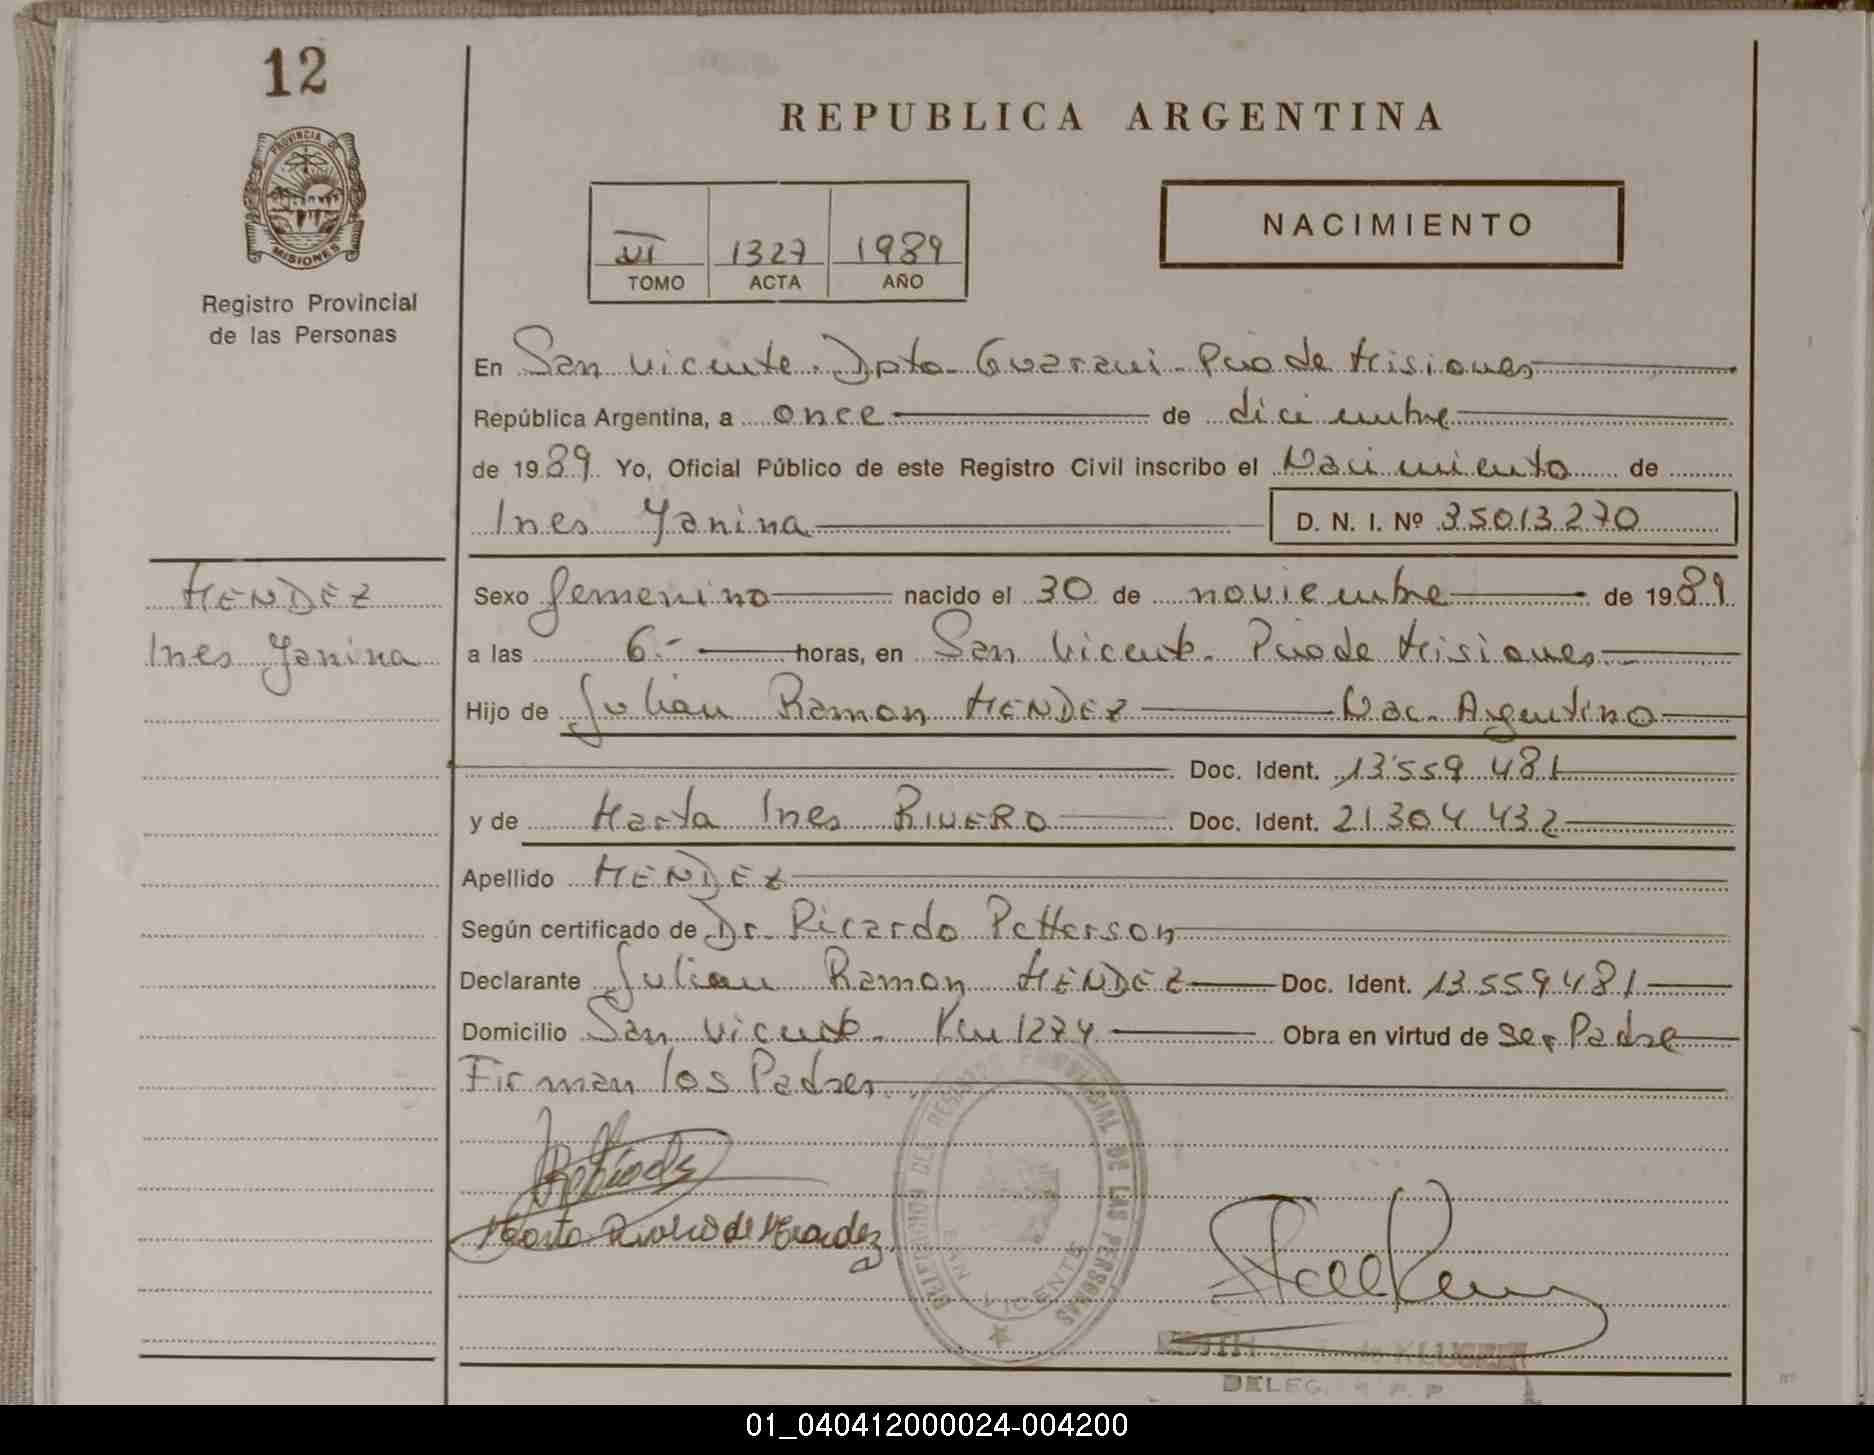 12
PROVINCIA DE
MISIONES
Registro Provincial
de las Personas
REPUBLICA ARGENTINA
VI 1327 1989
TOMO ACTA AÑO
NACIMIENTO
En San Vicente. Dpto- Guarani- Pcia de Misiones
República Argentina, a once de diciembre
de 1989. Yo, Oficial Público de este Registro Civil inscribo el Nacimiento de
Ines Yanina D. N. I. Nº 35013270
MENDEZ
Ines Yanina
Sexo femenino nacido el 30 de noviembre de 1989
a las 6.- horas, en San Vicente. Pcia de Misiones
Hijo de Julian Ramon MENDEZ Nac. Argentino
Doc. Ident. 13559 481
y de Marta Ines RIVERO Doc. Ident. 21304 432
Apellido MENDEZ
Según certificado de Dr. Ricardo Petterson
Declarante Julian Ramon MENDEZ Doc. Ident. 13559481
Domicilio San Vicente. Km 1274 Obra en virtud de ser Padre
Firman los Padres
Marta Rivero de Mendez
DELEGACION DEL REGISTRO PROVINCIAL DE LAS PERSONAS
SAN VICENTE
EDITH de KLUGER
DELEG. R P. P
01_040412000024-004200